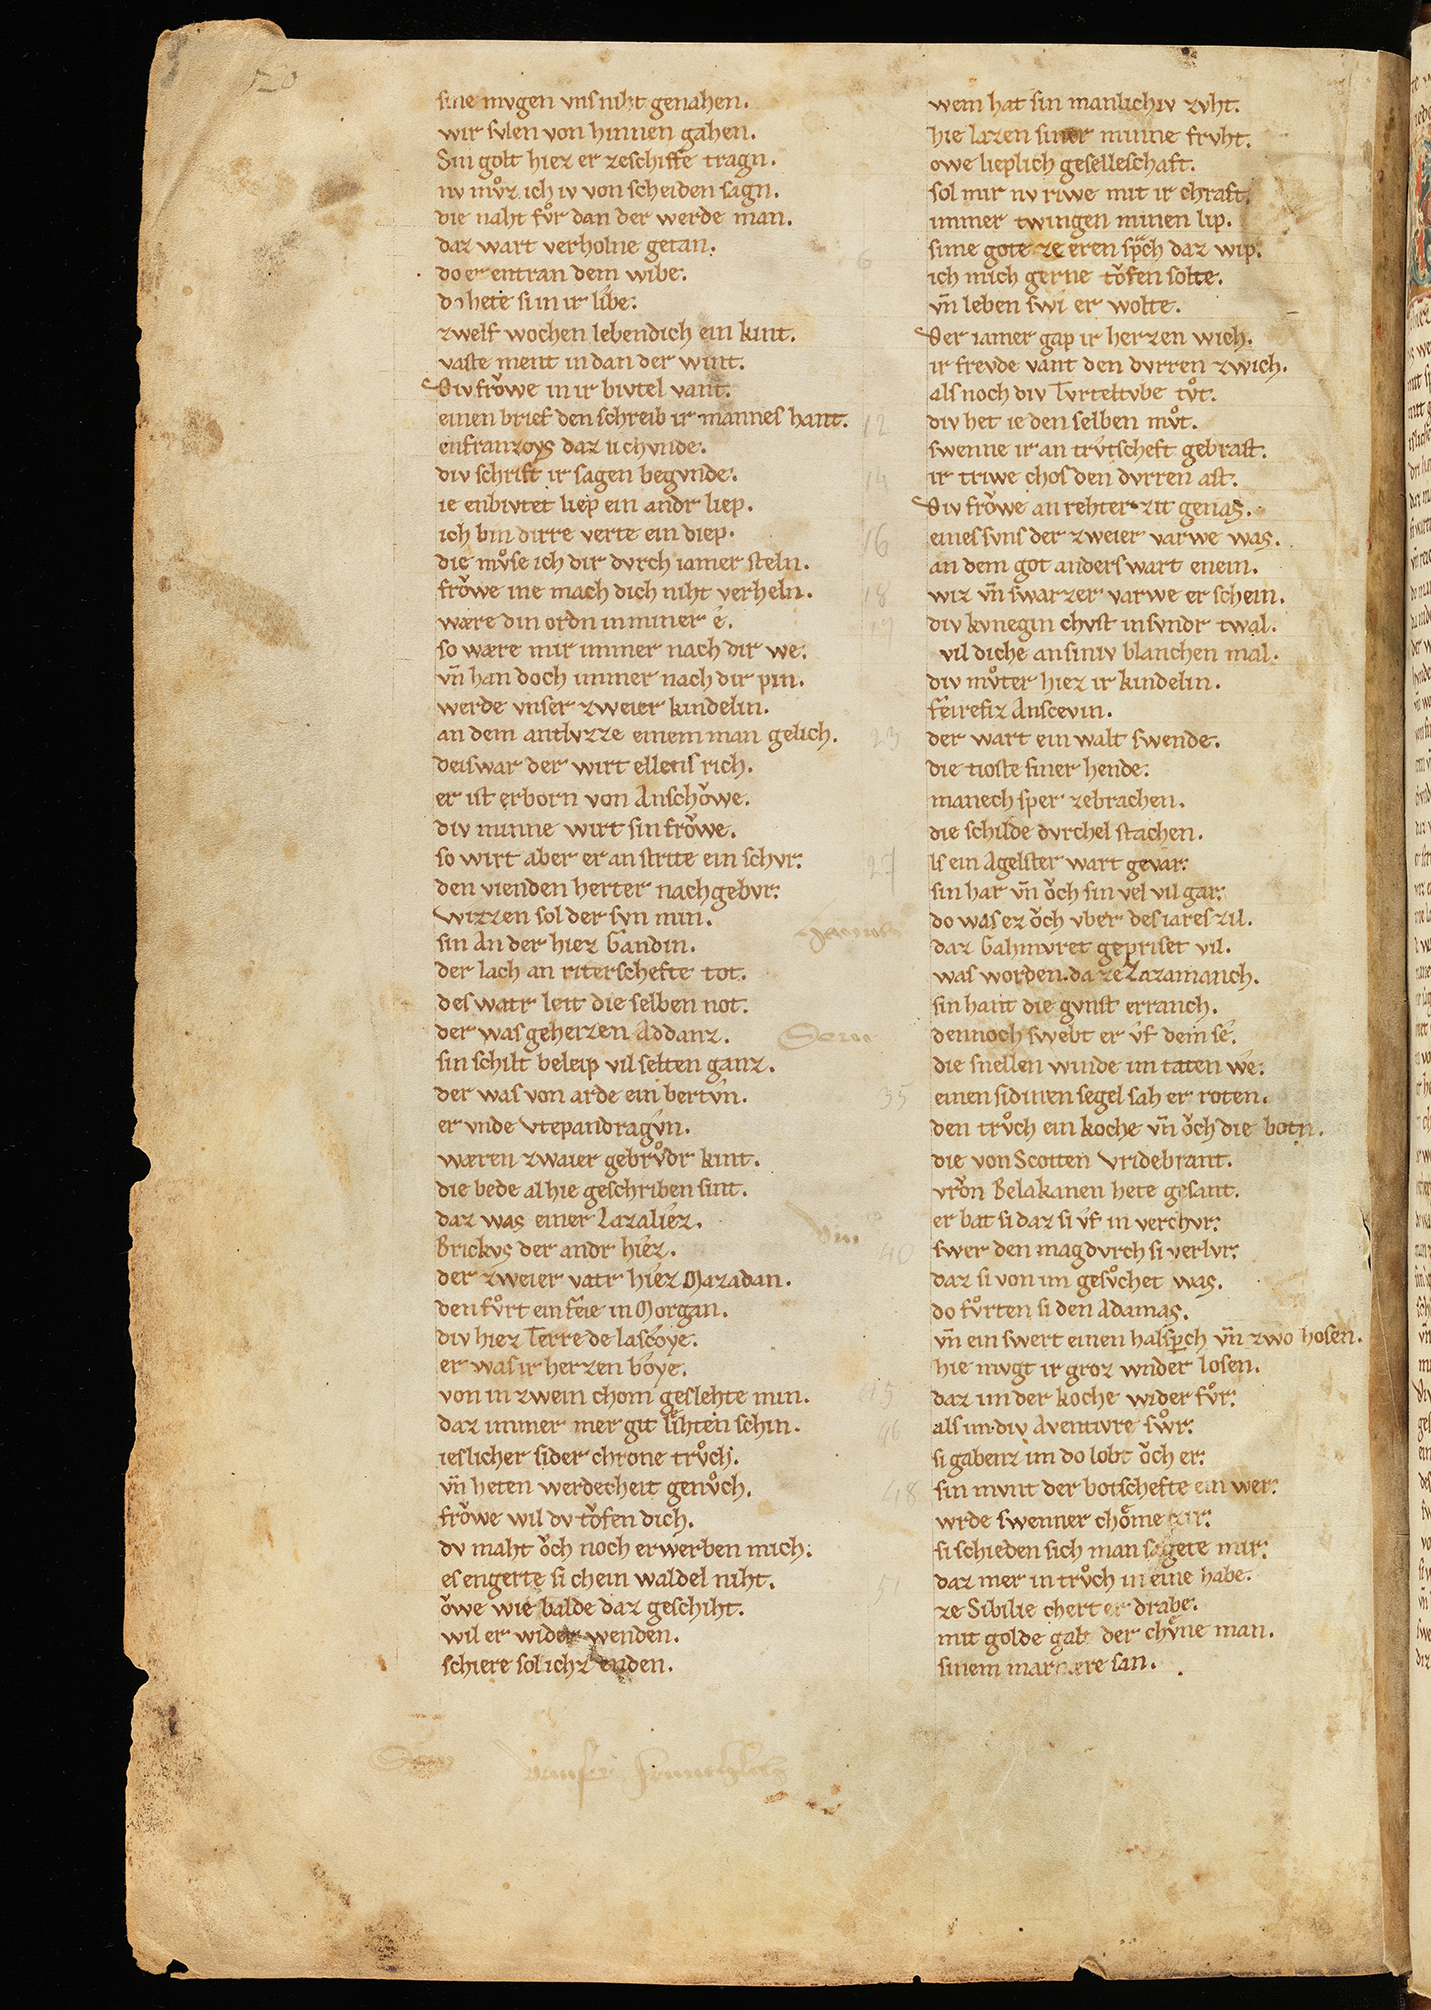 120
sine mvgen vns niht genahen.
wir svlen von hinnen gahen.
Sin golt hiez er zeschiffe tragn.
nv mvͦz ich iv von scheiden sagn.
die naht fvͦr dan der werde man.
daz wart verholne getan.
do er entran dem wibe.
do hete si in ir libe.
zwelf wochen lebendich ein kint.
vaste ment in dan der wint.
Div frowe in ir bivtel vant.
einen brief den schreib ir mannes hant.
enfranzoys daz si chvnde.
div schrift ir sagen begvnde.
ie enbivtet liep ein andr liep.
ich bin dirre verte ein diep.
die mvͦse ich dir dvrch iamer steln.
frowe ine mach dich niht verheln.
wære din ordn in miner e.
so wære mir immer nach dir we.
vn̄ han doch immer nach dir pin.
werde vnser zweier kindelin.
an dem antlvzze einem man gelich.
deiswar der wirt ellens rich.
er ist erborn von Anschowe.
div minne wirt sin frowe.
so wirt aber er an strite ein schvr.
den vienden herter nachgebvr.
wizzen sol der svn min.
sin An der hiez Gandin.
der lach an riterschefte tot.
des vatr leit die selben not.
der was geheizen Addanz.
sin schilt beleip vil selten ganz.
der was von arde ein bertvn.
er vnde Vtepandragvn.
wæren zwaier gebrvͦdr kint.
die bede al hie geschriben sint.
daz was einer Lazaliez.
Brickvs der andr hiez.
der zweier vatr hiez Mazadan.
den fvͦrt ein feie in Morgan.
div hiez Terre de lascoye.
er was ir herzen boye.
von in zwein chom geslehte min.
daz immer mer git liehten schin.
ieslicher sider chrone trvͦch.
vn̄ heten werdecheit genvͦch.
frowe wil dv tofen dich.
dv maht och noch erwerben mich.
es engerte si chein wandel niht.
owe wie balde daz geschiht.
wil er wider wenden.
schiere sol ichz enden.
wem hat sin manlichiv zvht.
hie lazen siner minne frvht.
owe lieplich geselleschaft.
sol mir nv riwe mit ir chraft.
immer twingen minen lip.
sime gote ze eren sprach daz wip.
ich mich gerne tofen solte.
vn̄ leben swi er wolte.
Der iamer gap ir herzen wich.
ir frevde vant den dvrren zwich.
als noch div Tvrteltvbe tvͦt.
div het ie den selben mvͦt.
swenne ir an trvtscheft gebrast.
ir triwe chos den dvrren ast.
Div frowe an rehter zit genas.
eines svns der zweier varwe was.
an dem got anders wart enein.
wiz vn̄ swarzer varwe er schein.
div kvnegin chvst in svndr twal.
vil diche an siniv blanchen mal.
div mvͦter hiez ir kindelin.
feirefiz Anscevin.
der wart ein walt swende.
die tioste siner hende.
manech sper zebrachen.
die schilde dvrchel stachen.
ls ein Agelster wart gevar.
sin har vn̄ och sin vel vil gar.
do was ez och vber des iares zil.
daz Gahmvret gepriset vil.
was worden da ze Zazamanch.
sin hant die gvnst erranch.
dennoch swebt er vf dem se.
die snellen winde im taten we.
einen sidinen segel sah er roten.
den trvͦch ein koche vn̄ och die botn.
die von Scotten Vridebrant.
vron Belakanen hete gesant.
er bat si daz si vf in verchvr.
swer den mag dvrch si verlvr.
daz si von im gesvͦchet was.
do fvͦrten si den Adamas.
vn̄ ein swert einen halsperch vn̄ zwo hosen.
hie mvgt ir groz wnder losen.
daz im der koche wider fvͦr.
als im div Aventivre swͦr.
si gabenz im do lobt och er.
sin mvnt der botschefte ein wer.
wrde swenner chome zir.
si schieden sich man sagete mir.
daz mer in trvͦch in eine habe.
ze Sibilie chert er drabe.
mit golde galt der chvͤne man.
sinem marnære san.